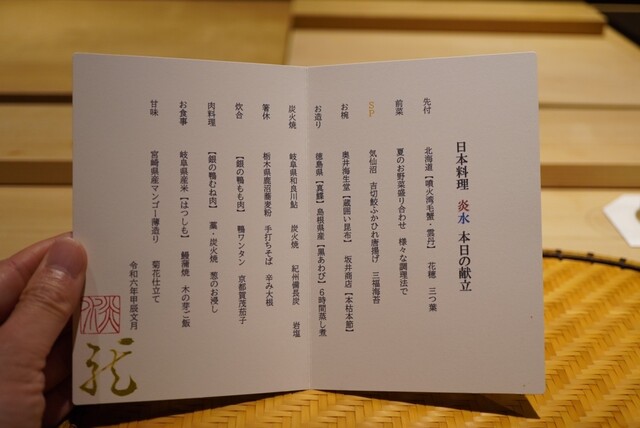 日本料理 炎水 本日の献立
先付 北海道【噴火湾毛蟹・雲丹】 花穂 三つ葉
前菜 夏のお野菜盛り合わせ 様々な調理法で
SP 気仙沼 吉切鮫ふかひれ唐揚げ 三福海苔
お椀 奥井海生堂【蔵囲い昆布】 坂井商店【本枯本節】
お造り 徳島県【真鱧】 島根県産【黒あわび】6時間蒸し煮
炭火焼 岐阜県和良川鮎 炭火焼 紀州備長炭 岩塩
箸休 栃木県鹿沼蕎麦粉 手打ちそば 辛み大根
炊合 【銀の鴨もも肉】 鴨ワンタン 京都賀茂茄子
肉料理 【銀の鴨むね肉】 藁・炭火焼 葱のお浸し
お食事 岐阜県産米【はつしも】 鰻蒲焼 木の芽ご飯
甘味 宮崎県産マンゴー薄造り 菊花仕立て
令和六年甲辰文月
龍